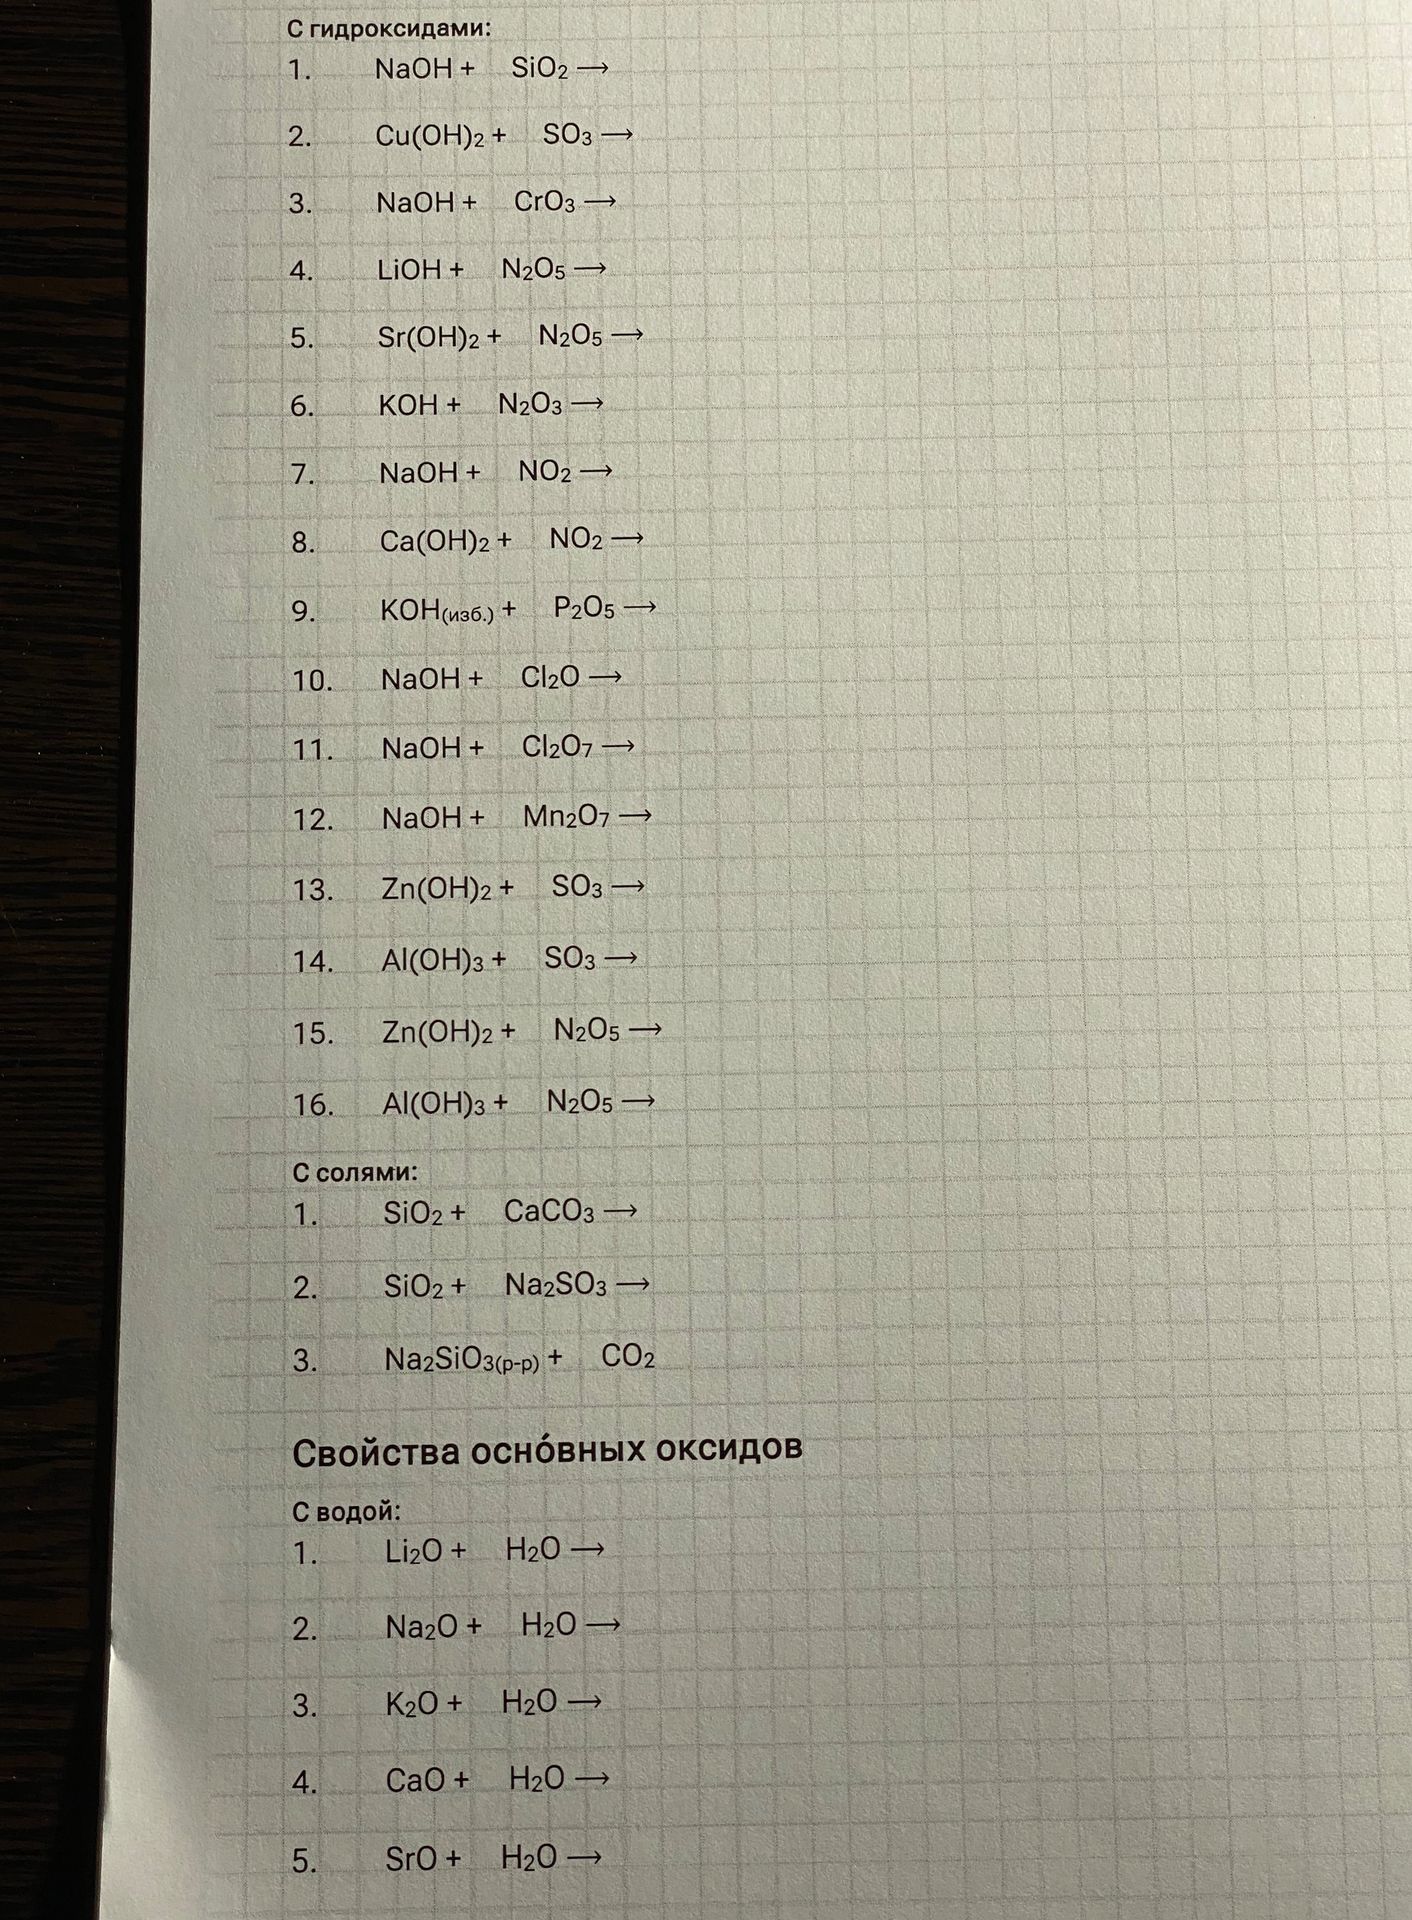 С гидроксидами:
1. NaOH + SiO2 ⟶
2. Cu(OH)2 + SO3 ⟶
3. NaOH + CrO3 ⟶
4. LiOH + N2O5 ⟶
5. Sr(OH)2 + N2O5 ⟶
6. KOH + N2O3 ⟶
7. NaOH + NO2 ⟶
8. Ca(OH)2 + NO2 ⟶
9. KOH(изб.) + P2O5 ⟶
10. NaOH + Cl2O ⟶
11. NaOH + Cl2O7 ⟶
12. NaOH + Mn2O7 ⟶
13. Zn(OH)2 + SO3 ⟶
14. Al(OH)3 + SO3 ⟶
15. Zn(OH)2 + N2O5 ⟶
16. Al(OH)3 + N2O5 ⟶
С солями:
1. SiO2 + CaCO3 ⟶
2. SiO2 + Na2SO3 ⟶
3. Na2SiO3(р-р) + CO2
Свойства осно́вных оксидов
С водой:
1. Li2O + H2O ⟶
2. Na2O + H2O ⟶
3. K2O + H2O ⟶
4. CaO + H2O ⟶
5. SrO + H2O ⟶